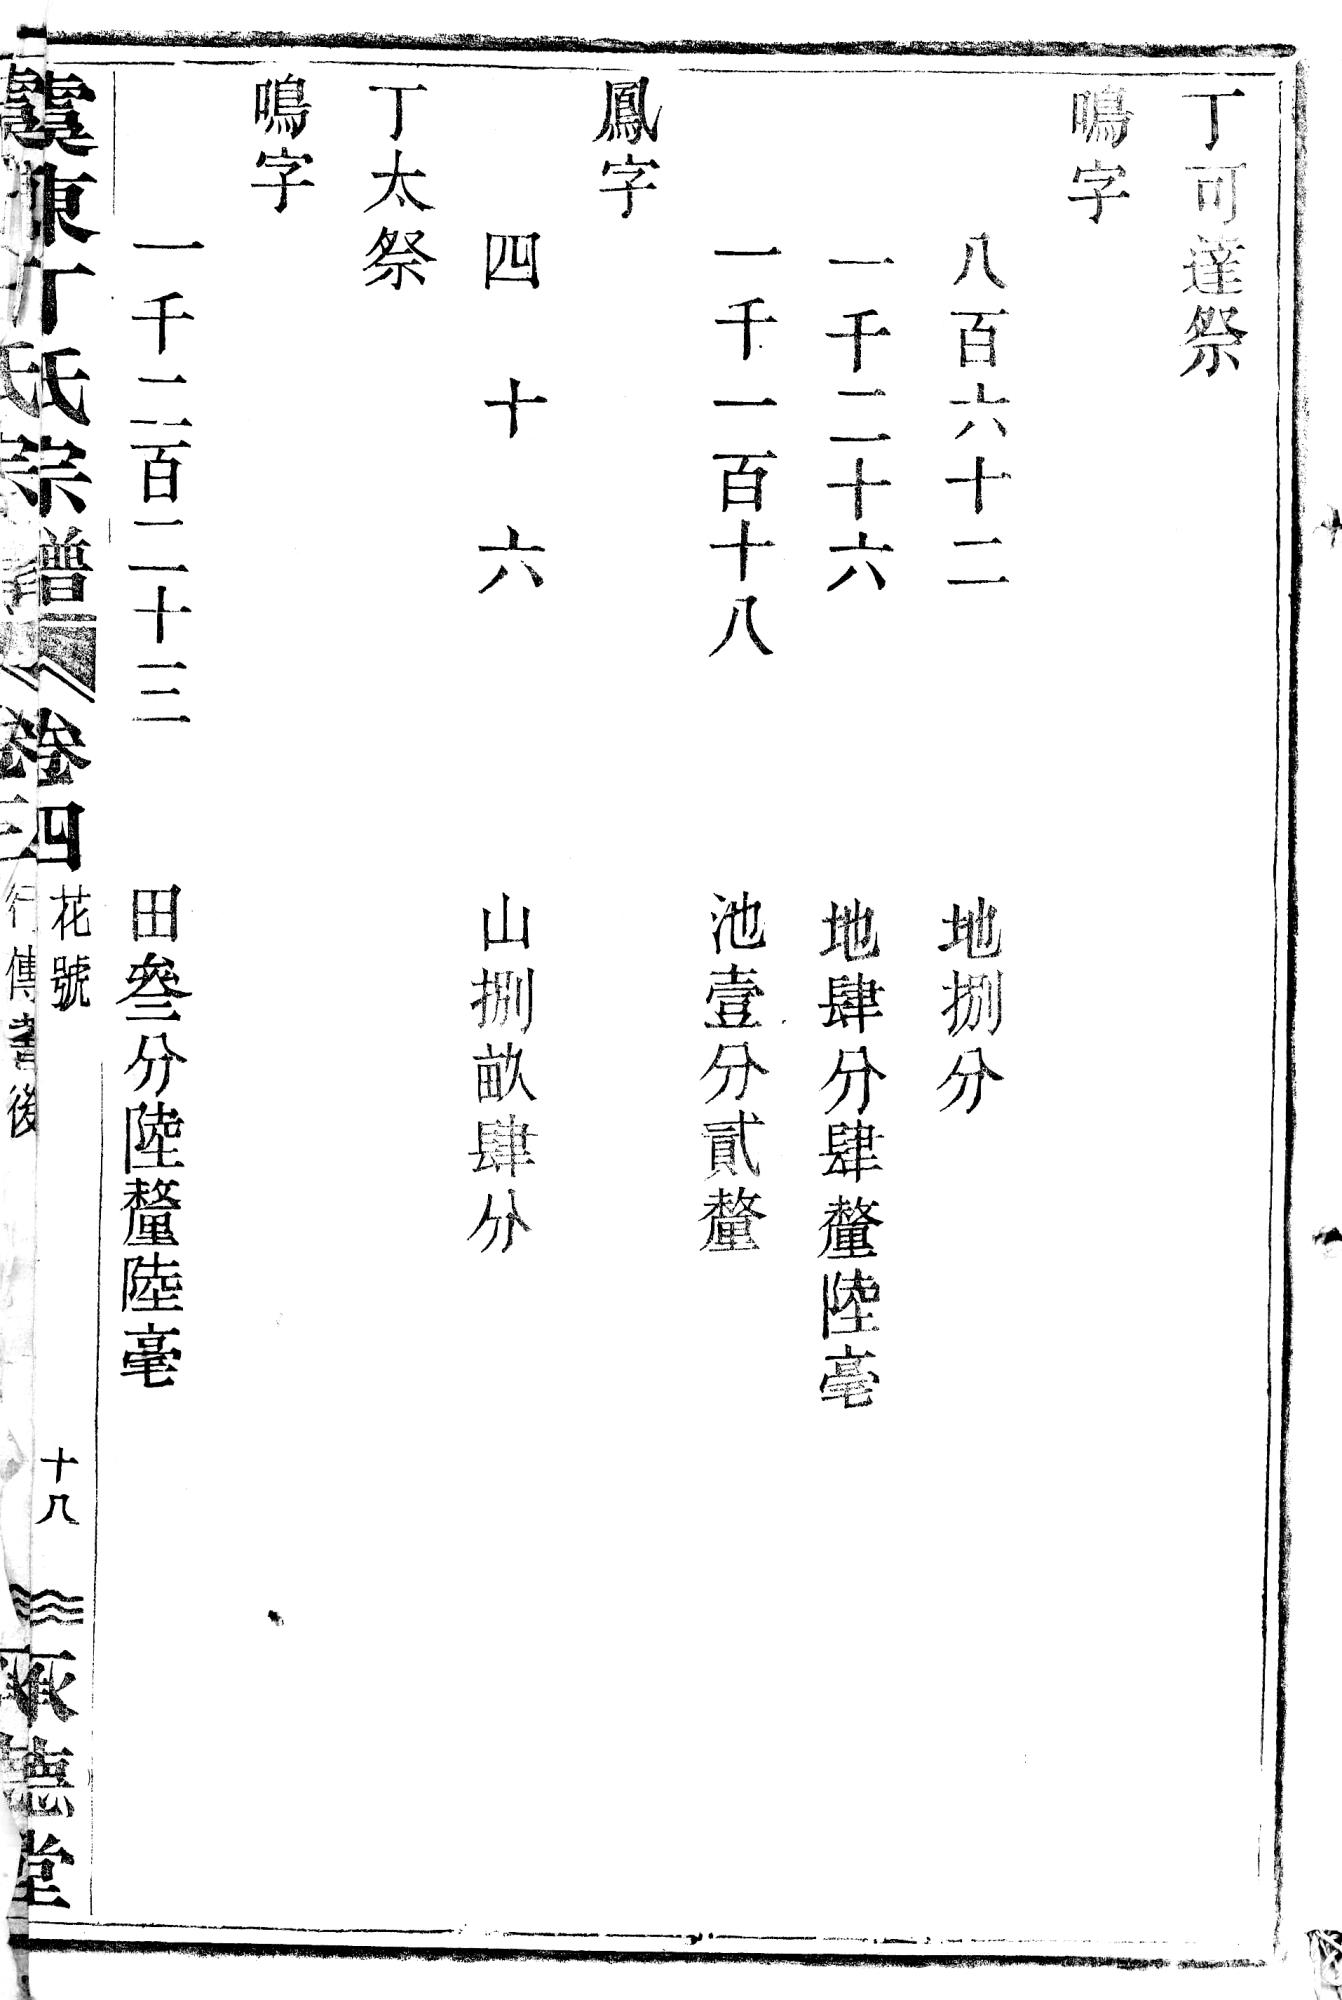 丁可達祭
鳴字
八百六十二 地捌分
一千二十六 地肆分肆釐陸毫
一千一百十八 池壹分貳釐
鳳字
四十六 山捌畝肆分
丁太祭
鳴字
一千二百二十三 田叄分陸釐陸毫
虞東丁氏宗譜 卷四 花號 十八 承德堂
行傳 後